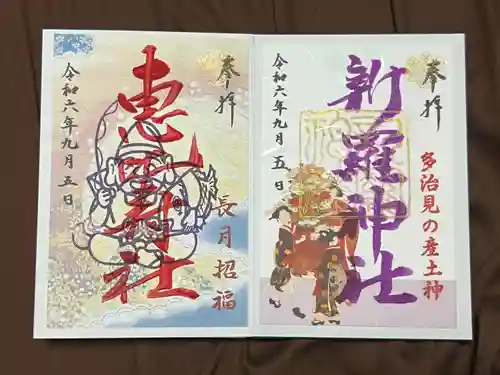 奉拝
多治見の産土神
新羅神社
令和六年九月五日
奉拝
長月招福
令和六年九月五日